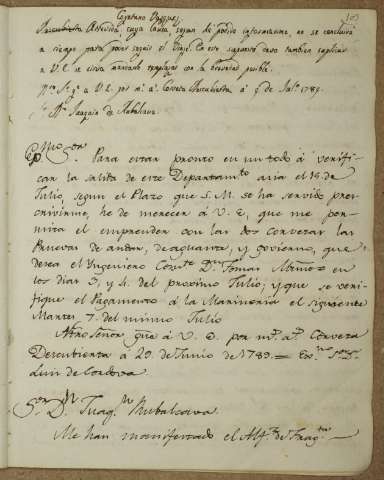 Cayetano Vazquez
Descubierta Atrevida, cuya causa, segun he podido informarme, no se concluirá
a tiempo para poder seguir el viage. En este supuesto devo tambien suplicar
a V.E. se sirva mandarlo remplazar con la brevedad posible.
Ntro Sr. gue a V.E. por ms. as. Corveta Descubierta á 9 de Julo 1789.
Sr. Dn. Joaquin de Rubalcava
Exmo. Sor. Para estar pronto en un todo á verifi-
can la salida de este Departamto el dia el 15 de
Julio, segun el Plazo que S.M. se ha servido pres-
crivirme, he de merecer á V.E, que me per-
mita el emprender con las dos corvetas las
Pruevas de andar, de aguante, y govierno, que
desea el Ingeniero Comte Dn Tomas Muñoz en
los dias 3, y 4, del proximo Julio; y que se veri-
fique el Pagamento á la Marineria el siguiente
Martes 7 del mismo Julio
Ntro Señor gue á V.E. por ms. as. Corveta
Descubierta á 20 de Junio de 1789 = Exmo. Sor. Dn.
Luis de Cordova
Sor. Dn. Juaqn Rubalcava
Me han manifestado el Alfz. de Fragta